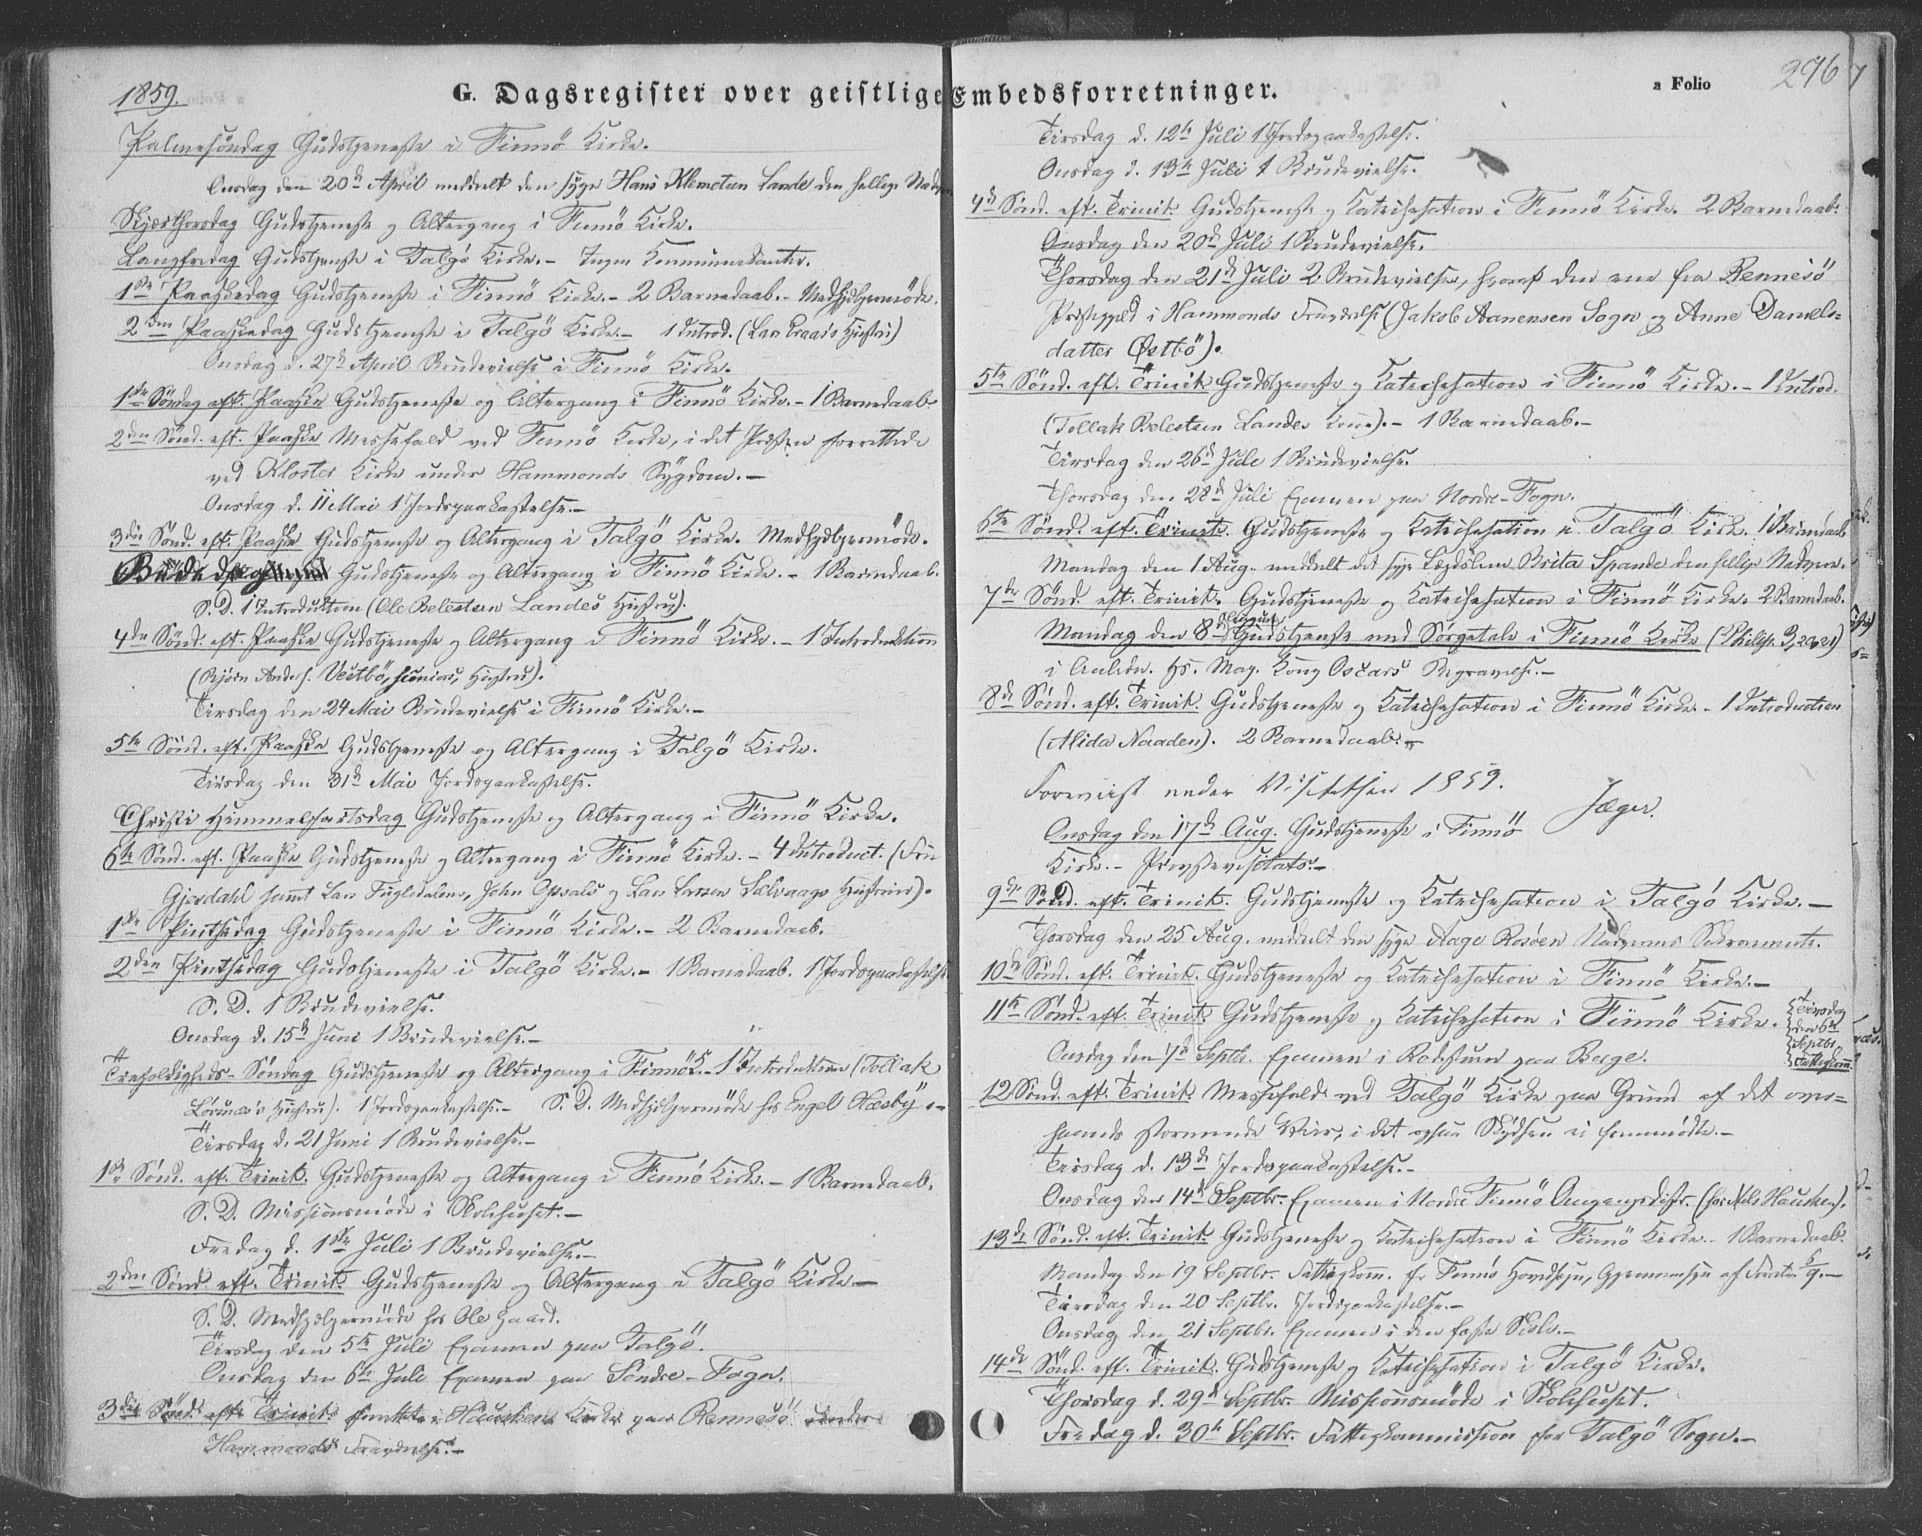 1859.
G. Dagsregister over geistlige Embedsforretninger.
a Folio
296
Palmesöndag Gudstjeneste i Finnö Kirke.
Onsdag den 20de April meddelt den syge Hans Klemetsen Lande den hellige Nadvere
Skjærthorsdag Gudstjeneste og Altergang i Finnö Kirke.
Langfredag Gudstjeneste i Talgö Kirke. - Ingen Kommunikanter.
1ste Paaskedag Gudstjeneste i Finnö Kirke. - 2 Barnedaab. - Medhjelpermöde.
2den Paaskedag Gudstjeneste i Talgö Kirke. - 1 Introd. (Lars Hustru)
Onsdag d. 27de April Brudevielse i Finnö Kirke.
1ste Söndag eft. Paaske Gudstjeneste og Altergang i Finnö Kirke. - 1 Barnedaab.
2den Sönd. eft. Paaske Messefald ved Finnö Kirke, idet Præsten forrettede
ved Kloster Kirke under Hammonds Sygdom. -
Onsdag d. 11 Mai 1 Jordspaakastelse. -
3die Sönd. eft. Paaske Gudstjeneste og Altergang i Talgö Kirke. Medhjelpermöde.
Bededag Gudstjeneste og Altergang i Finnö Kirke. - 1 Barnedaab.
S. D. 1 Introduktion (Ole Belestsen Landes Hustru).
4de Sönd. eft. Paaske Gudstjeneste og Altergang i Finnö Kirke. - 1 Introduktion
(Björn Anders. Vestbö, Hustru).
Tirsdag den 24 Mai Brudevielse i Finnö Kirke. -
5te Sönd. eft. Paaske Gudstjeneste og Altergang i Talgö Kirke.
Tirsdag den 31te Mai Jordspaakastelse.
Christi Himmelfartsdag Gudstjeneste og Altergang i Finnö Kirke.
6te Sönd. eft. Paaske Gudstjeneste og Altergang i Finnö Kirke. - 4 Introduct. (Fru
Gjerdahl samt Lars Fugledalens, John Opsals og Lars Larsen Selvaags Hustruer).
1ste Pintsedag Gudstjeneste i Finnö Kirke. - 2 Barnedaab.
2den Pintsedag Gudstjeneste i Talgö Kirke. - 1 Barnedaab. 1 Jordspaakastelse
S. D. 1 Brudevielse.
Onsdag d. 15de Juni 1 Brudevielse. -
Trefoldigheds-Söndag Gudstjeneste og Altergang i Finnö K. - 1 Introduktion (Tollak
Hustru). 1 Jordspaakastelse. - S. D. Medhjelpermöde hos Engel Hæsbÿ. -
Tirsdag d. 21 Juni 1 Brudevielse. -
1ste Sönd. eft. Trinit. Gudstjeneste og Altergang i Finnö Kirke. - 1 Barnedaab.
S. D. Missionsmöde i Skolehuset. -
Fredag d. 1ste Juli 1 Brudevielse. -
2den Sönd. eft. Trinit. Gudstjeneste og Altergang i Talgö Kirke -
S. D. Medhjelpermöde hos Ole Gaard.
Tirsdag den 5te Juli Examen paa Talgö.
Onsdag den 6te Juli Examen paa Söndre-Fogn.
3die Sönd. eft. Trinit. i Hauskens Kirke paa Rennesö under
Hammonds Fraværelse. -
Tirsdag d. 12te Juli 1 Jordspaakastelse.
Onsdag d. 13de Juli 1 Brudevielse.
4de Sönd. eft. Trinit. Gudstjeneste og Katechisation i Finnö Kirke. 2 Barnedaab.
Onsdag den 20de Juli 1 Brudevielse.
Thorsdag den 21de Juli 2 Brudevielser, hvoraf den ene fra Rennesö
Præstegjeld i Hammonds Fraværelse (Jakob Aanensen Sogn og Anne Daniels-
datter Østbö).
5te Sönd. eft. Trinit. Gudstjeneste og Katechisation i Finnö Kirke. - 1 Introd.
(Tollak Belestsen Landes Kone). - 1 Barnedaab. -
Tirsdag den 26de Juli 1 Brudevielse.
Thorsdag den 28de Juli Examen paa Nordre-Fogn.
6te Sönd. eft. Trinit. Gudstjeneste og Katechisation i Talgö Kirke. 1 Barnedaab
Mandag den 1 Aug. meddelt det syge Lægdslem Brita Spande den hellige Nadvere.
7de Sönd. eft. Trinit. Gudstjeneste og Katechisation i Finnö Kirke. 2 Barnedaab.
Mandag den 8de August Gudstjeneste med Sörgetale i Finnö Kirke (Philip. 3, 20 & 21)
i Anledn. Hs. Maj. Kong Oscars Begravelse. -
8de Sönd. eft. Trinit. Gudstjeneste og Katechisation i Finnö Kirke. - 1 Introduction
(Alida Naaden). 2 Barnedaab. -
Foreviist under Visitatsen 1859.
Jæger.
Onsdag den 17de Aug. Gudstjeneste i Finnö
Kirke. - Provstevisitats. -
9de Sönd. eft. Trinit. Gudstjeneste og Katechisation i Talgö Kirke. -
Thorsdag den 25 Aug. meddelt den syge Aage Rosöen Nadverens Sakramente.
10de Sönd. eft. Trinit. Gudstjeneste og Katechisation i Finnö Kirke. -
11te Sönd. eft. Trinit. Gudstjeneste og Katechisation i Finnö Kirke.
Tirsdag
den 6te
Septbr.
Fattigkomm.
Onsdag den 7de Septbr. Examen i Rodstuen paa Berge.
12 Sönd. eft. Trinit. Messefald ved Talgö Kirke paa Grund af det over-
haands stormende Veir, idet ogsaa Skydsen ei fremmödte. -
Tirsdag d. 13de Jordspaakastelse. -
Onsdag den 14de Septbr. Examen i Nordre Finnö Omgangsdistr. (hos Nils Hausken).
13de Sönd. eft. Trinit. Gudstjeneste og Katechisation i Finnö Kirke. - 1 Barnedaab.
Mandag den 19 Septbr. Fattigkomm. for Finnö Hovedsogn, 6/9. -
Tirsdag den 20 Septbr. Jordspaakastelse. -
Onsdag den 21 Septbr. Examen i den faste Skole. -
14de Sönd. eft. Trinit. Gudstjeneste og Katechisation i Talgö Kirke.
Thorsdag d. 29de Septbr. Missionsmöde i Skolehuset.
Fredag d. 30te Septbr. Fattigkommission for Talgö Sogn. -